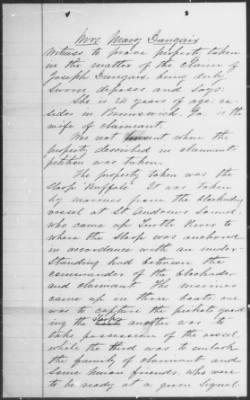 Mrs. Mary Dangaix
Witness to prove property taken
in the matter of the Claim of
Joseph Dangaix, being duly
sworn deposes and says:
She is 24 years of age: re-
sides in Brunswick, Ga. is the
wife of claimant.
Was not present when the
property described in claimant's
petition was taken.
The property taken was the
Sloop Buffalo. It was taken
by marines from the blockading
vessel at St Andrews Sound,
who came up Turtle River to
where the Sloop was anchored
in accordance with an under-
standing had between the
commander of the blockader
and claimant. The marines
came up in three boats, one
was to capture the pickets guard-
ing the Sloop another was to
take possession of the vessel,
while the third was to embark
the family of claimant and
some Union friends, who were
to be ready at a given signal.